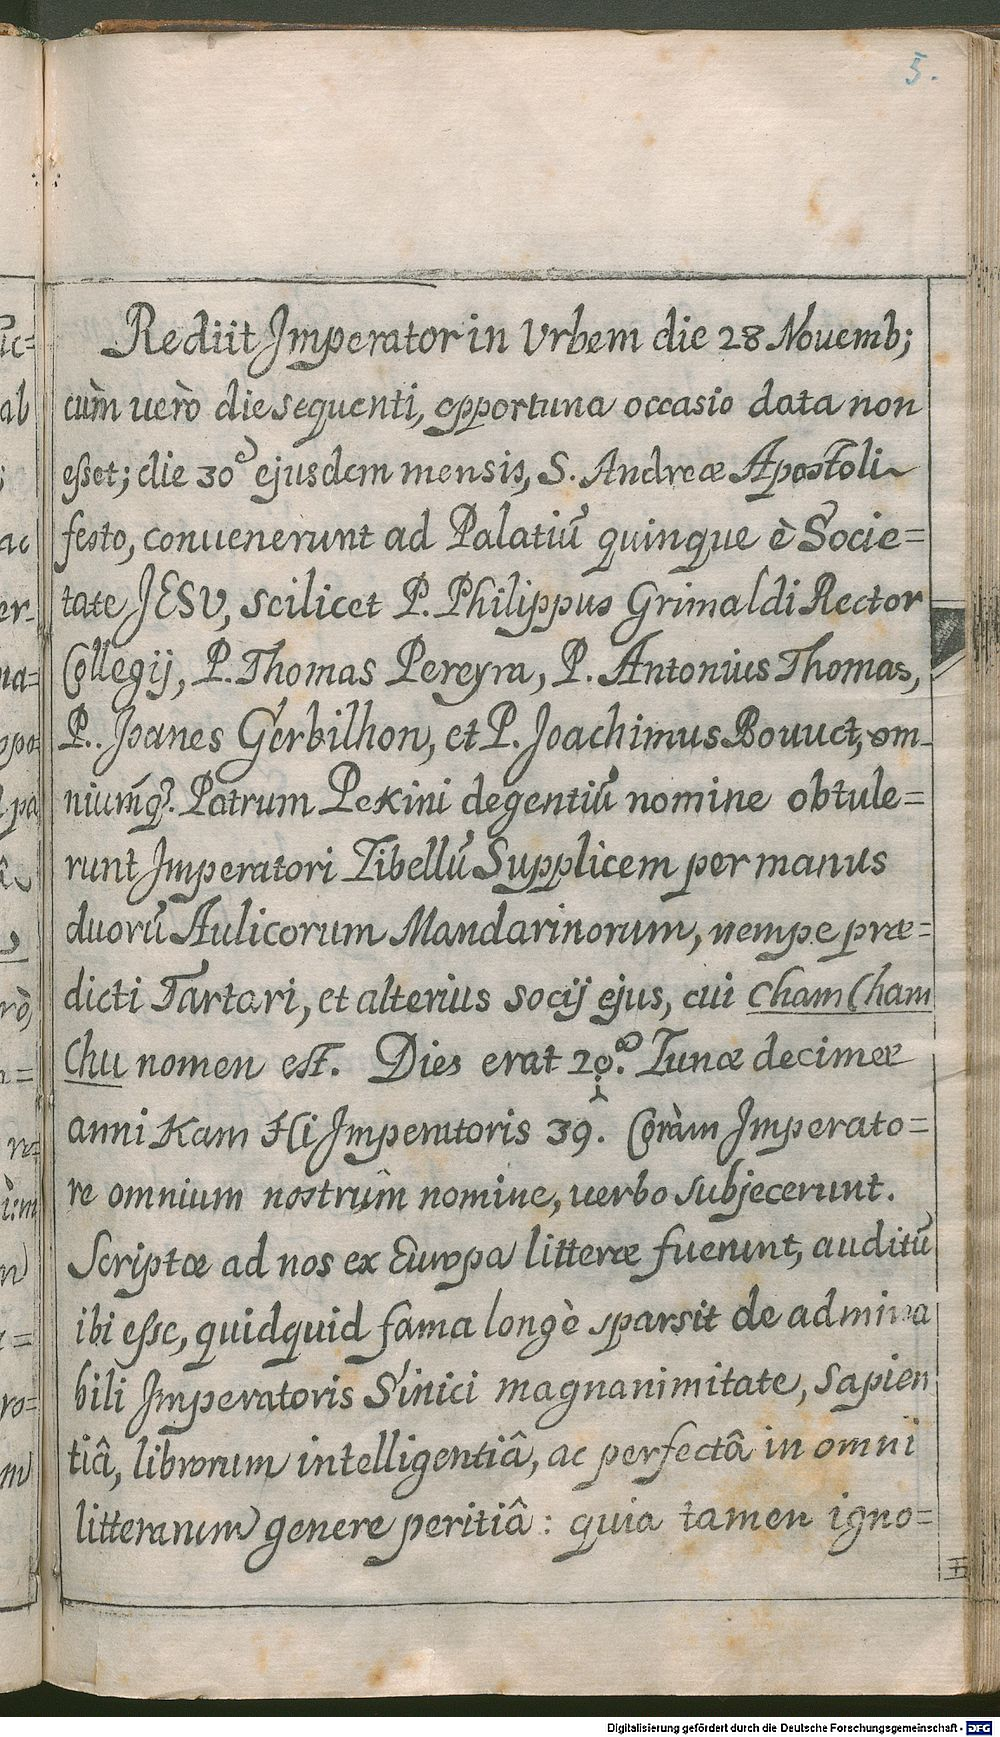 5.
Rediit Imperator in Vrbem die 28 Nouemb;
cùm uerò die sequenti, opportuna occasio data non
esset; die 30º ejusdem mensis, S. Andreæ Apostoli
festo, conuenerunt ad Palatiū quinque è Socie=
tate JESV, scilicet P. Philippus Grimaldi Rector
Collegij, P. Thomas Pereyra, P. Antonius Thomas,
P. Joanes Gerbilhon, et P. Joachimus Bouuet, om-
niumq̃. Patrum Pekini degentiū nomine obtule=
runt Imperatori Libellū Supplicem per manus
duorū Aulicorum Mandarinorum, nempe præ=
dicti Tartari, et alterius socij ejus, cui Cham Cham
Chu nomen est. Dies erat 20. Lunæ decimæ
anni Kam Hi Imperatoris 39. Coràm Imperato=
re omnium nostrûm nomine, uerbo subjecerunt.
Scriptæ ad nos ex Europa litteræ fuerunt, auditū
ibi esse, quidquid fama longè sparsit de admira
bili Imperatoris Sinici magnanimitate, Sapien
tiâ, librorum intelligentiâ, ac perfectâ in omni
litterarum genere peritiâ : quia tamen igno=
ab
Digitalisierung gefördert durch die Deutsche Forschungsgemeinschaft - DFG